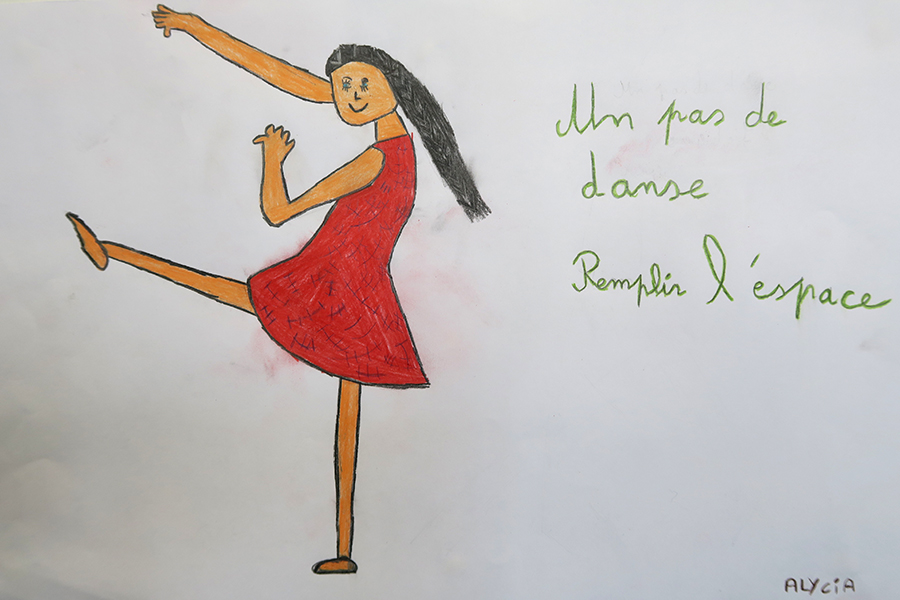 Un pas de
danse
Remplir l'éspace
ALYCiA